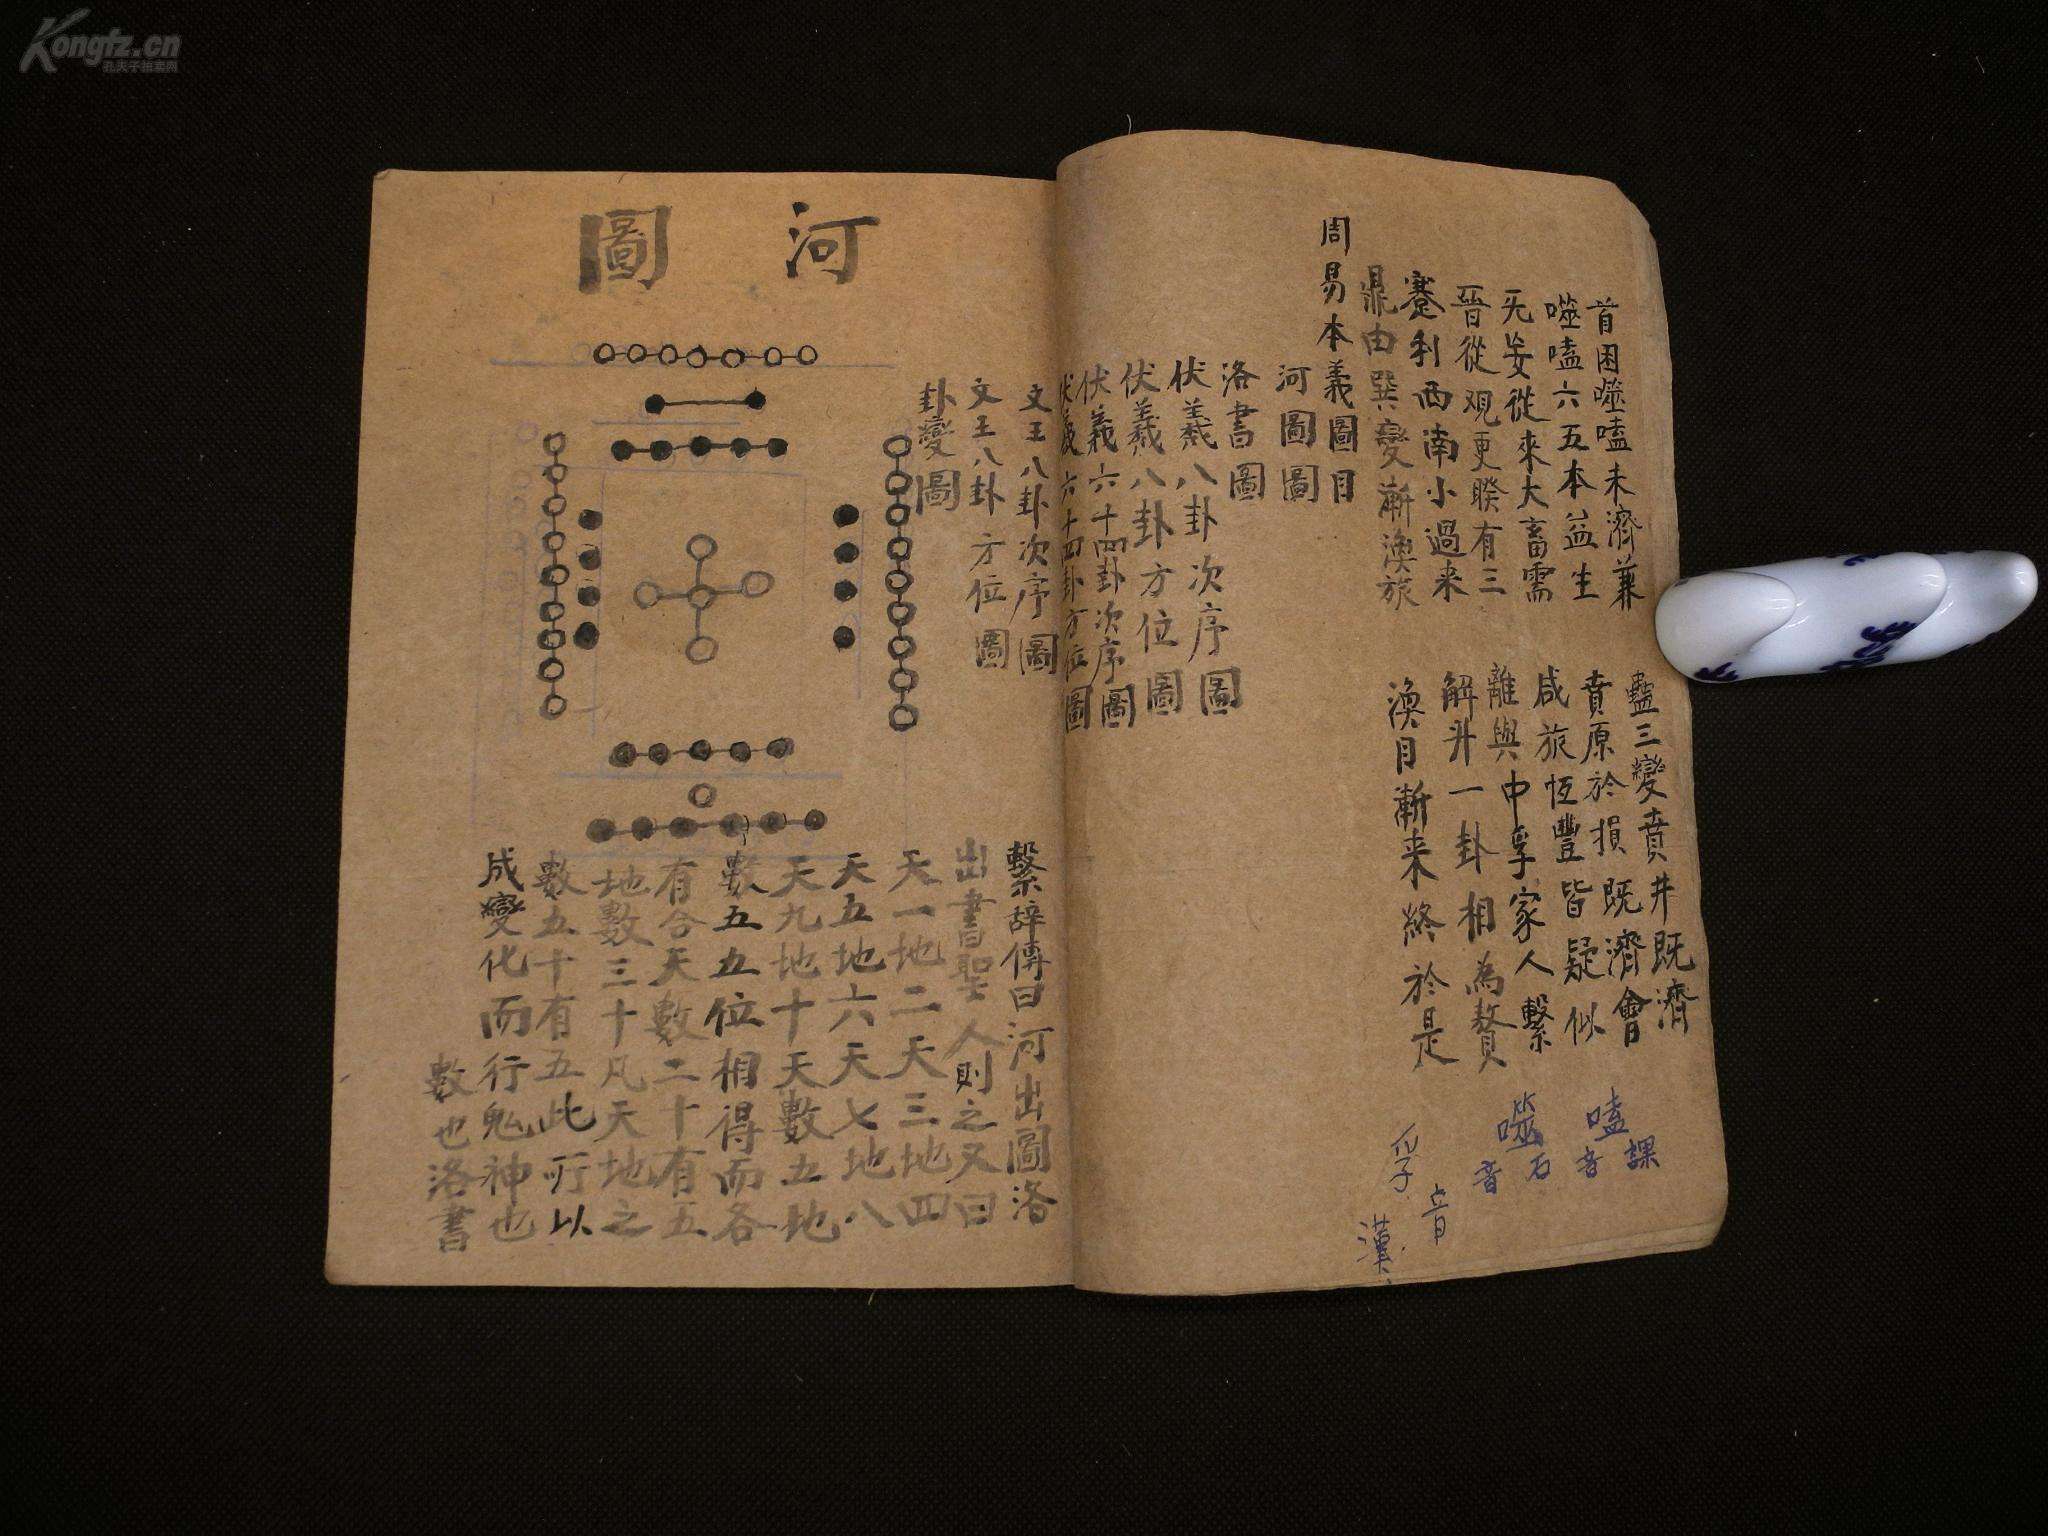 首困噬嗑未濟兼 蠱三變賁井既濟
噬嗑六五本益生 賁原於損既濟會
无妄從來大畜需 咸旅恆豐皆疑似
晉從观更睽有三 離與中孚家人繫
蹇利西南小過来 解升一卦相為贅
鼎由巽變漸渙旅 渙目漸来終於是
嗑音課
噬音石
孚音
漢
周易本義圖目
河圖圖
洛書圖
伏羲八卦次序圖
伏羲八卦方位圖
伏羲六十四卦次序圖
伏羲六十四卦方位圖
文王八卦次序圖
文王八卦方位圖
卦變圖
河圖
繫辞傳曰河出圖洛
出書聖人則之又曰
天一地二天三地四
天五地六天七地八
天九地十天數五地
數五五位相得而各
有合天數二十有五
地數三十凡天地之
數五十有五此所以
成變化而行鬼神也
數也洛書
Kongfz.cn
孔夫子拍卖网